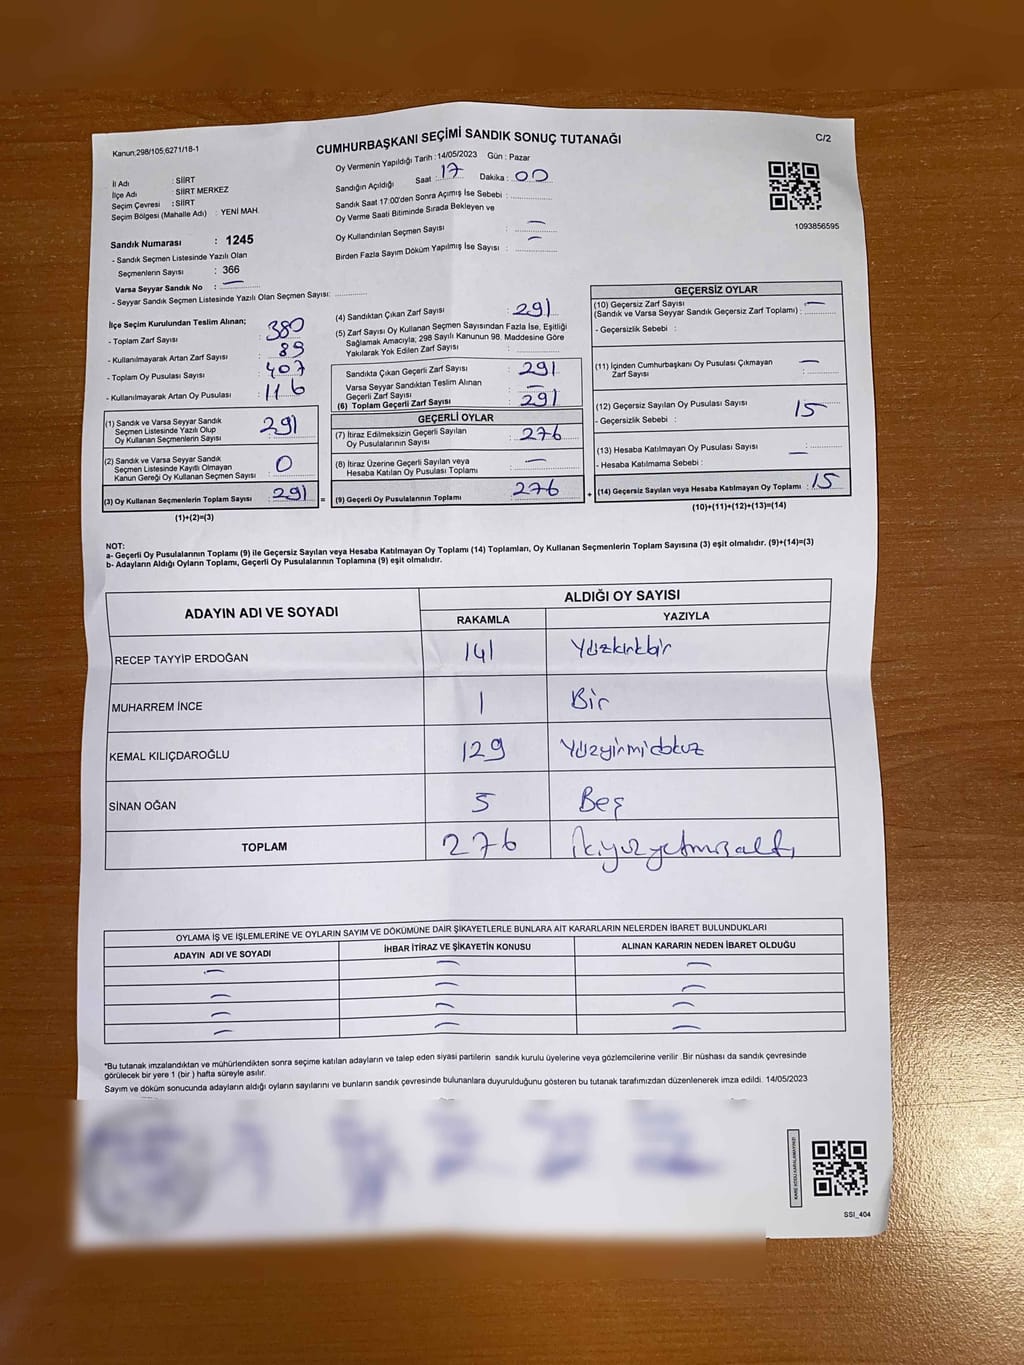 Kanun;298/105;6271/18-1
CUMHURBAŞKANI SEÇİMİ SANDIK SONUÇ TUTANAĞI
C/2
Oy Vermenin Yapıldığı Tarih :14/05/2023 Gün : Pazar
İl Adı : SİİRT
İlçe Adı : SİİRT MERKEZ
Seçim Çevresi : SİİRT
Seçim Bölgesi (Mahalle Adı) : YENİ MAH.
Sandığın Açıldığı Saat : 17 Dakika : 00
Sandık Saat 17:00'den Sonra Açımış İse Sebebi :
Oy Verme Saati Bitiminde Sırada Bekleyen ve
Oy Kullandırılan Seçmen Sayısı : —
Birden Fazla Sayım Döküm Yapılmış İse Sayısı : —
1093856595
Sandık Numarası : 1245
- Sandık Seçmen Listesinde Yazılı Olan
Seçmenlerin Sayısı : 366
Varsa Seyyar Sandık No : —
- Seyyar Sandık Seçmen Listesinde Yazılı Olan Seçmen Sayısı:
İlçe Seçim Kurulundan Teslim Alınan;
- Toplam Zarf Sayısı : 380
- Kullanılmayarak Artan Zarf Sayısı : 89
- Toplam Oy Pusulası Sayısı : 407
- Kullanılmayarak Artan Oy Pusulası : 116
(1) Sandık ve Varsa Seyyar Sandık
Seçmen Listesinde Yazılı Olup
Oy Kullanan Seçmenlerin Sayısı : 291
(2) Sandık ve Varsa Seyyar Sandık
Seçmen Listesinde Kayıtlı Olmayan
Kanun Gereği Oy Kullanan Seçmen Sayısı : 0
(3) Oy Kullanan Seçmenlerin Toplam Sayısı : 291 =
(1)+(2)=(3)
(4) Sandıktan Çıkan Zarf Sayısı : 291
(5) Zarf Sayısı Oy Kullanan Seçmen Sayısından Fazla İse, Eşitliği
Sağlamak Amacıyla; 298 Sayılı Kanunun 98. Maddesine Göre
Yakılarak Yok Edilen Zarf Sayısı :
Sandıkta Çıkan Geçerli Zarf Sayısı : 291
Varsa Seyyar Sandıktan Teslim Alınan
Geçerli Zarf Sayısı : —
(6) Toplam Geçerli Zarf Sayısı : 291
GEÇERLİ OYLAR
(7) İtiraz Edilmeksizin Geçerli Sayılan
Oy Pusulasının Sayısı : 276
(8) İtiraz Üzerine Geçerli Sayılan veya
Hesaba Katılan Oy Pusulası Toplamı : —
(9) Geçerli Oy Pusulalarının Toplamı : 276 +
GEÇERSİZ OYLAR
(10) Geçersiz Zarf Sayısı
(Sandık ve Varsa Seyyar Sandık Geçersiz Zarf Toplamı) : —
- Geçersizlik Sebebi :
(11) İçinden Cumhurbaşkanı Oy Pusulası Çıkmayan
Zarf Sayısı : —
(12) Geçersiz Sayılan Oy Pusulası Sayısı : 15
- Geçersizlik Sebebi :
(13) Hesaba Katılmayan Oy Pusulası Sayısı : —
- Hesaba Katılmama Sebebi :
(14) Geçersiz Sayılan veya Hesaba Katılmayan Oy Toplamı : 15
(10)+(11)+(12)+(13)=(14)
NOT:
a- Geçerli Oy Pusulalarının Toplamı (9) ile Geçersiz Sayılan veya Hesaba Katılmayan Oy Toplamı (14) Toplamları, Oy Kullanan Seçmenlerin Toplam Sayısına (3) eşit olmalıdır. (9)+(14)=(3)
b- Adayların Aldığı Oyların Toplamı, Geçerli Oy Pusulalarının Toplamına (9) eşit olmalıdır.
ADAYIN ADI VE SOYADI ALDIĞI OY SAYISI
RAKAMLA YAZIYLA
RECEP TAYYİP ERDOĞAN 141 Yüzkırkbir
MUHARREM İNCE 1 Bir
KEMAL KILIÇDAROĞLU 129 Yüzyirmidokuz
SİNAN OĞAN 5 Beş
TOPLAM 276 İkiyüzyetmişaltı
OYLAMA İŞ VE İŞLEMLERİNE VE OYLARIN SAYIM VE DÖKÜMÜNE DAİR ŞİKAYETLERLE BUNLARA AİT KARARLARIN NELERDEN İBARET BULUNDUKLARI
ADAYIN ADI VE SOYADI İHBAR İTİRAZ VE ŞİKAYETİN KONUSU ALINAN KARARIN NEDEN İBARET OLDUĞU
— — —
— — —
— — —
— — —
*Bu tutanak imzalandıktan ve mühürlendikten sonra seçime katılan adayların ve talep eden siyasi partilerin sandık kurulu üyelerine veya gözlemcilerine verilir .Bir nüshası da sandık çevresinde
görülecek bir yere 1 (bir ) hafta süreyle asılır.
Sayım ve döküm sonucunda adayların aldığı oyların sayılarını ve bunların sandık çevresinde bulunanlara duyurulduğunu gösteren bu tutanak tarafımızdan düzenlenerek imza edildi. 14/05/2023
KARE KODU KARALAMAYINIZ!
SSI_404